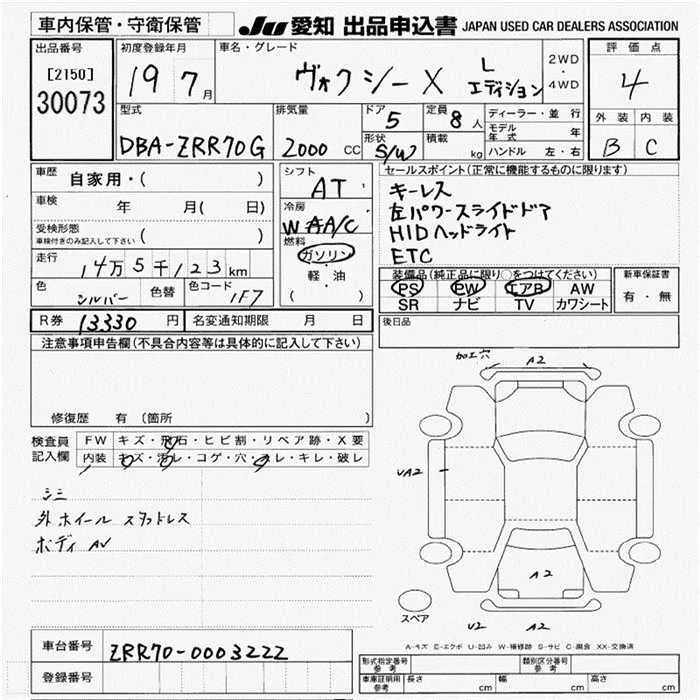 車内保管・守衛保管
JU 愛知 出品申込書 JAPAN USED CAR DEALERS ASSOCIATION
出品番号
[2150]
30073
初度登録年月
19 7月
車名・グレード
ヴォクシーX Lエディション
2WD・4WD
評価点
4
外装 内装
B C
型式
DBA-ZRR70G
排気量
2000 CC
ドア 5
形状 S/W
定員 8人
積載 kg
ディーラー・並行
モデル年式 年
ハンドル 左・右
車歴
自家用・( )
車検 年 月( 日)
受検形態
車検付きのみ記入して下さい ( )
走行
14万5千123km
色 シルバー 色替 色コード 1F7
シフト
AT
冷房
WAA/C
燃料
ガソリン・軽・油
( )
セールスポイント(正常に機能するものに限ります)
キーレス
左パワースライドドア
HIDヘッドライト
ETC
装備品(純正品に限り○をつけてください)
PS PW エアB AW
SR ナビ TV カワシート
新車保証書
有・無
R券 13330円 名変通知期限 月 日
後日品
注意事項申告欄(不具合内容等は具体的に記入して下さい)
修復歴 有 (箇所 )
検査員記入欄
FW キズ・飛石・ヒビ割・リペア跡・X要
内装 キズ・汚レ・コゲ・穴・スレ・キレ・破レ
シミ
外ホイール スタッドレス
ボディ AV
加工穴 A2
UA2
A2
U2 A2
スペア
A-キズ E-エクボ U-凹み W-補修跡 S-サビ C-腐食 XX-交換済
車台番号 ZRR70-0003222
登録番号
形式指定番号 参考
類別区分番号 参考
車庫証明用 参考 長さ cm 幅 cm 高さ cm